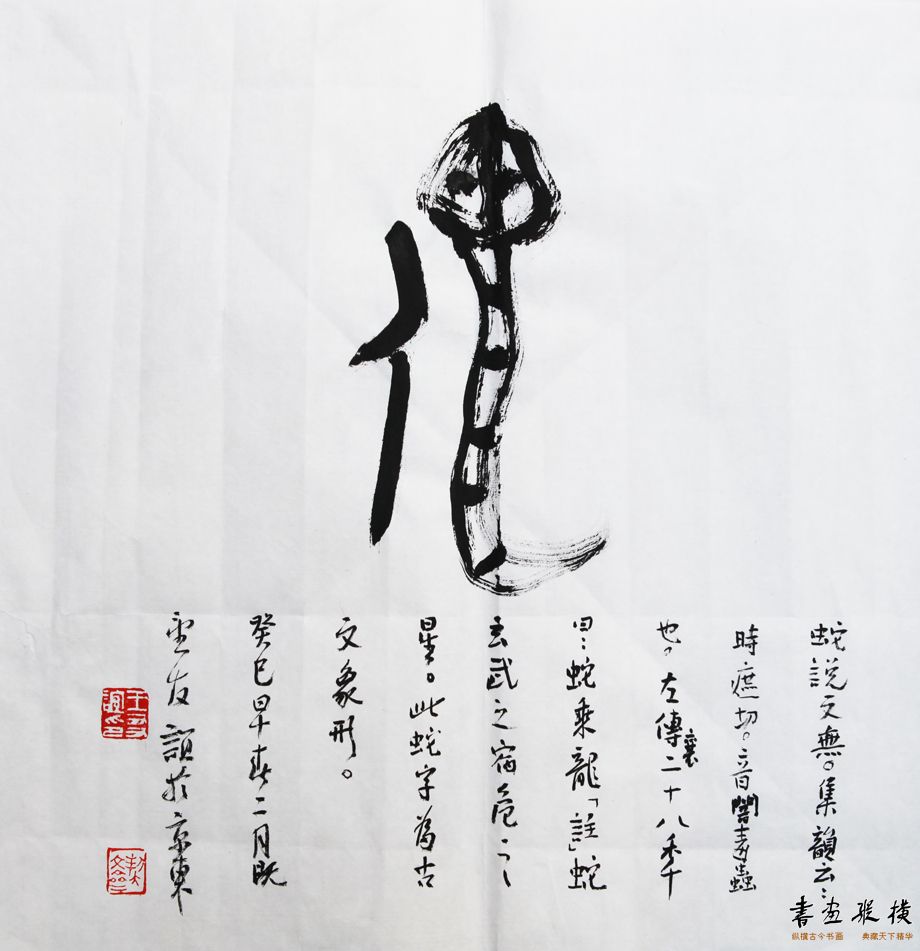 蛇說文無。集韻云：
時遮切。音闍毒蟲
也。左傳襄二十八年
曰：蛇乘龍「註」蛇
玄武之宿危之
星。此蛇字為古
文象形。
癸巳早春二月既
望友誼於京東
書画縱橫
纵横古今书画 典藏天下精华